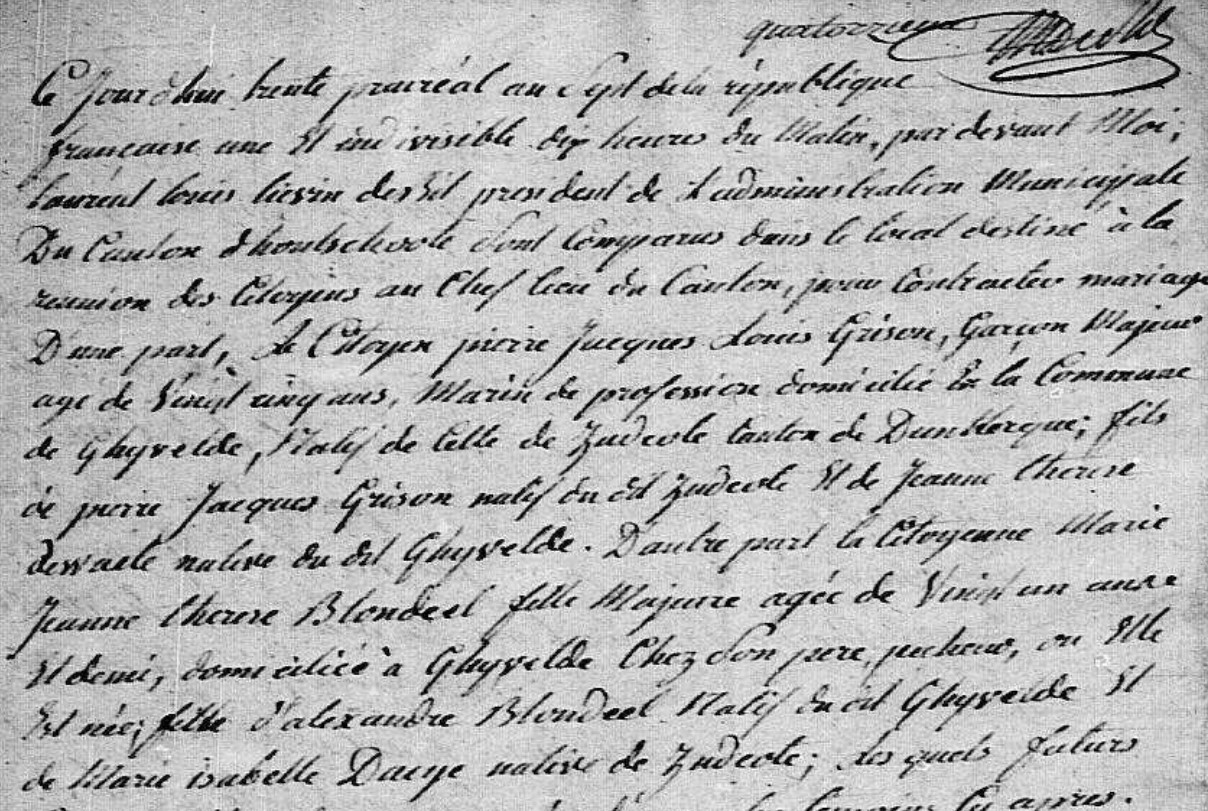 quatorzieme
Ce Jourd'hui trente prairéal an Sept de la république
française une Et indivisible dix heures du Matin, par devant Moi,
laurent louis lievin president de L'administration Municipale
Du Canton d'hontschoote Sont Comparus dans le local destiné à la
reunion des Citoyens au Chef lieu du Canton, pour Contracter mariage
D'une part, Le Citoyen pierre Jacques Louis Grison, Garçon Majeur
agé de Vinght cinq ans, Marin de profession domicilié En la Commune
de Ghyvelde, Natif de Celle de Zudcote Canton de Dunkerque; fils
de pierre Jacques Grison natif du dit Zudcote Et de Jeanne therese
dewaele native du dit Ghyvelde. D'autre part la Citoyenne Marie
Jeanne therese Blondeel fille Majeure agée de Vinght un ans
Et demi, domiciliéé à Ghyvelde Chez Son pere, pecheur, ou Elle
Est née; fille d'alexandre Blondeel Natif du dit Ghyvelde Et
de Marie isabelle Daeye native de Zudcote; Les quels futurs
temoins Cy apres.